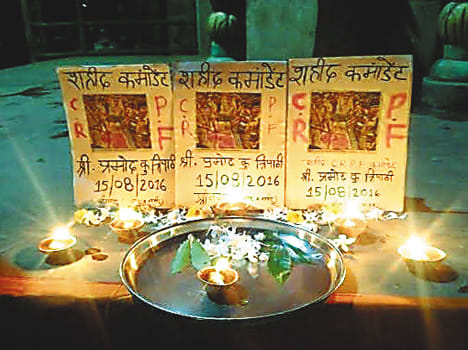 शहीद कमांडेंट
C P
R F
श्री. प्रमोद कु त्रिपाठी
15/08/2016
शहीद कमांडेंट
C
R
श्री. प्रमोद कु त्रिपाठी
15/08/2016
शहीद कमांडेंट
C P
R F
श्री. प्रमोद कु त्रिपाठी
15/08/2016